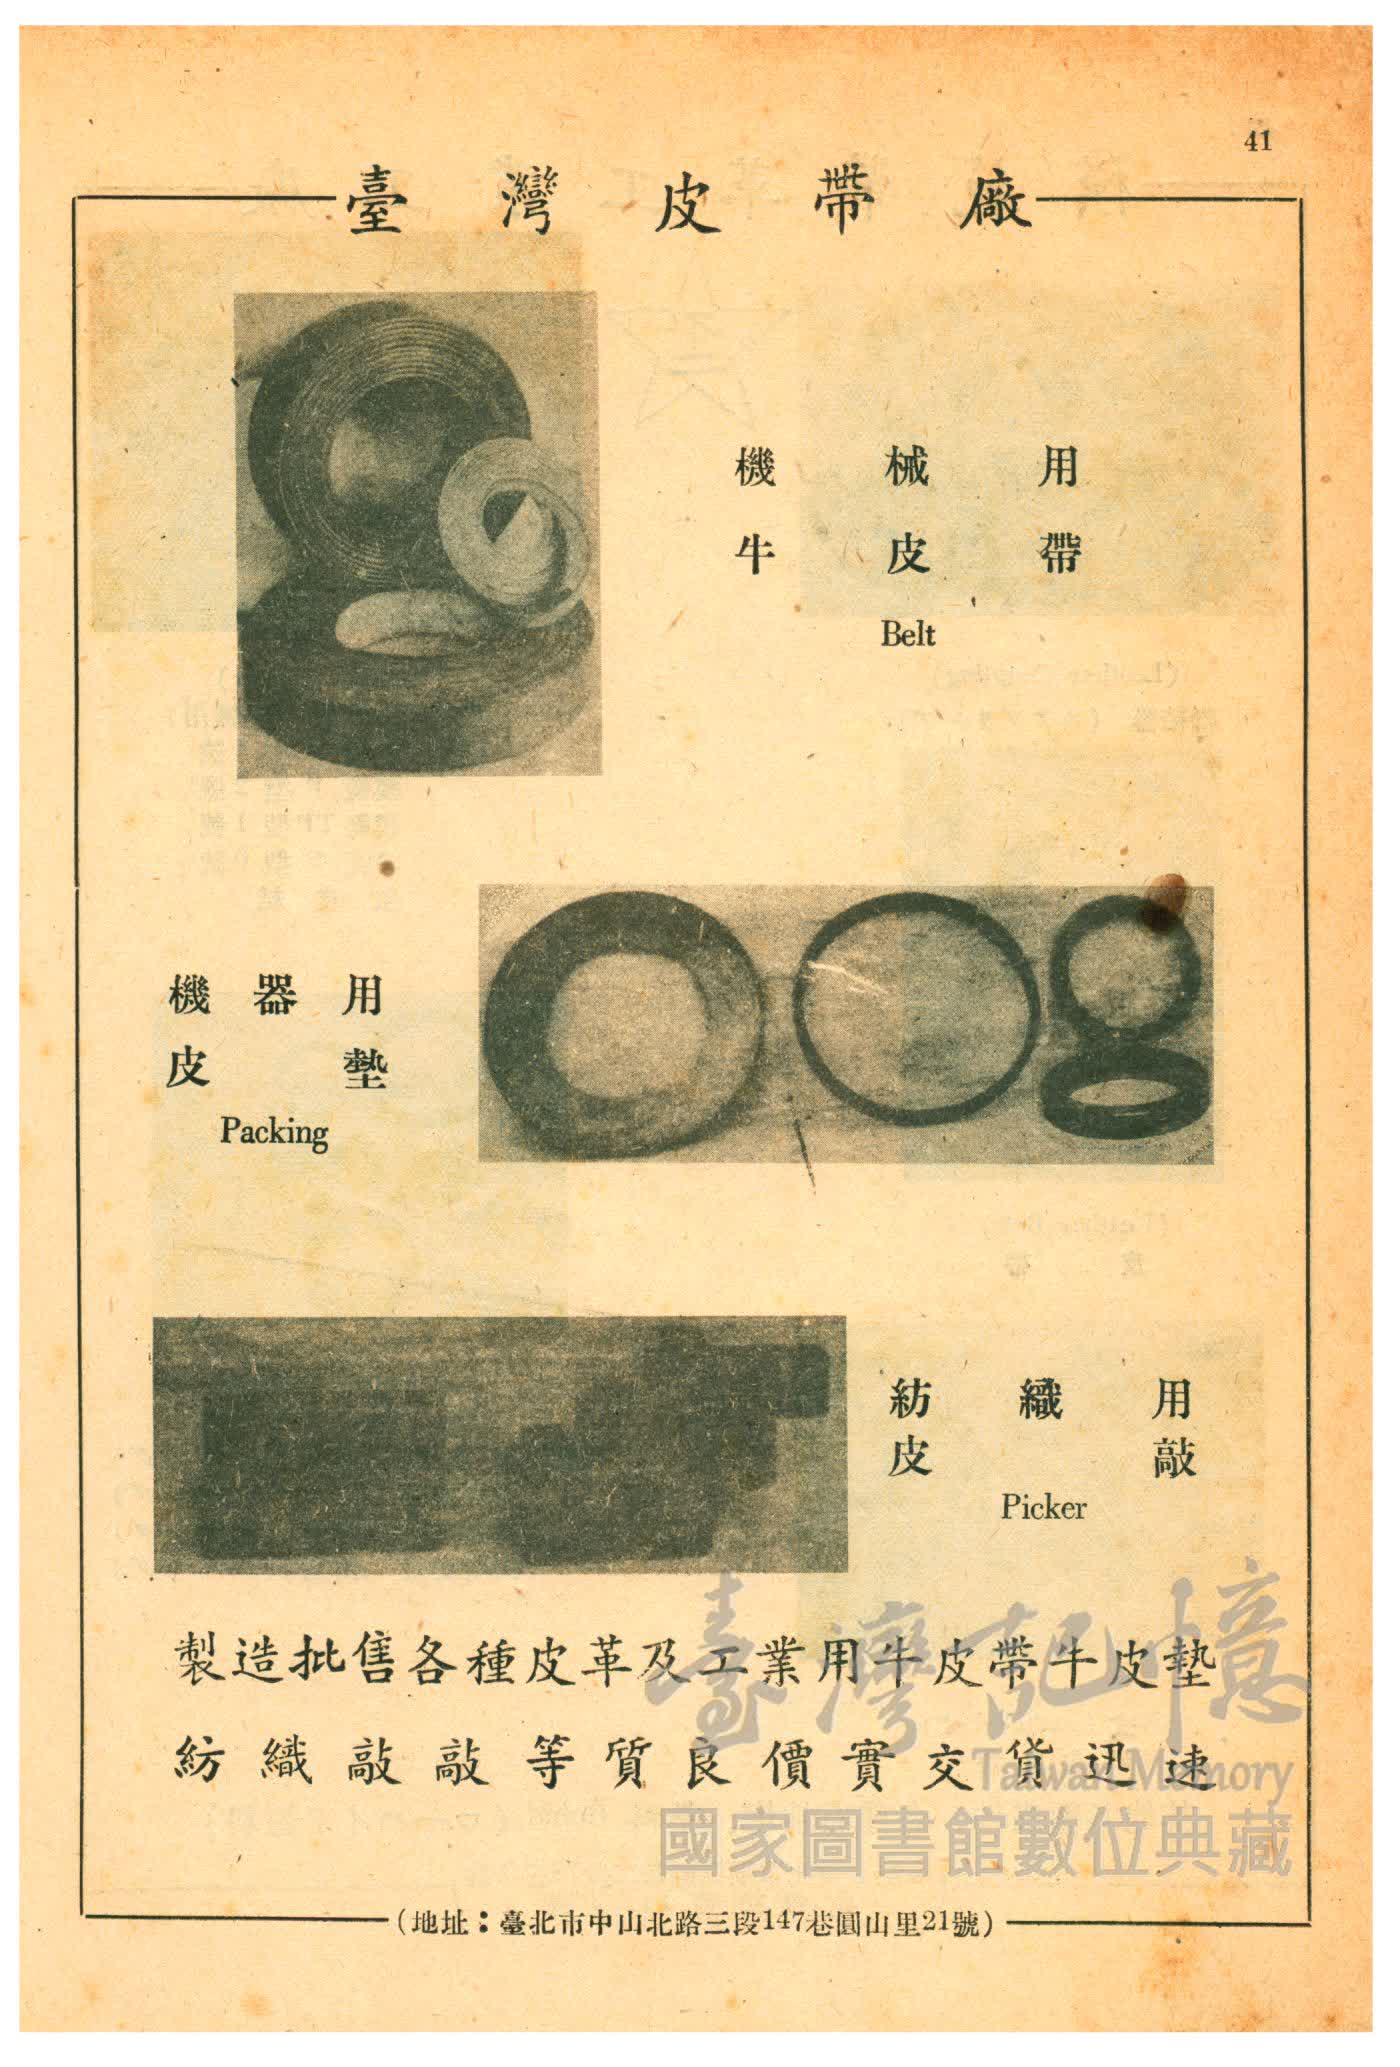 41
臺灣皮帶廠
機械用
牛皮帶
Belt
機器用
皮墊
Packing
紡織用
皮敲
Picker
製造批售各種皮革及工業用牛皮帶牛皮墊
紡織敲敲等質良價實交貨迅速
(地址：臺北市中山北路三段147巷圓山里21號)
臺灣記憶
Taiwan Memory
國家圖書館數位典藏